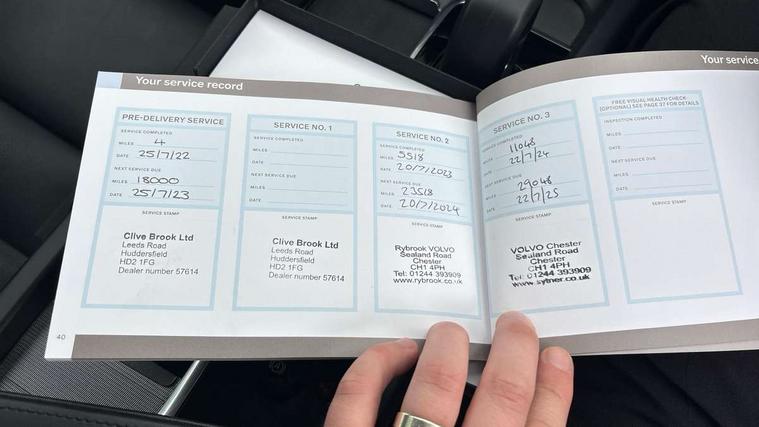 Your service record
PRE-DELIVERY SERVICE
SERVICE COMPLETED
MILES 4
DATE 25/7/22
NEXT SERVICE DUE
MILES 18000
DATE 25/7/23
SERVICE STAMP
Clive Brook Ltd
Leeds Road
Huddersfield
HD2 1FG
Dealer number 57614
SERVICE NO. 1
SERVICE COMPLETED
MILES
DATE
NEXT SERVICE DUE
MILES
DATE
SERVICE STAMP
Clive Brook Ltd
Leeds Road
Huddersfield
HD2 1FG
Dealer number 57614
SERVICE NO. 2
SERVICE COMPLETED
MILES 5518
DATE 20/7/2023
NEXT SERVICE DUE
MILES 23518
DATE 20/7/2024
SERVICE STAMP
Rybrook VOLVO
Sealand Road
Chester
CH1 4PH
Tel: 01244 393909
www.rybrook.co.uk
40
Your service
SERVICE NO. 3
SERVICE COMPLETED
MILES 11048
DATE 22/7/24
NEXT SERVICE DUE
MILES 29048
DATE 22/7/25
SERVICE STAMP
VOLVO Chester
Sealand Road
Chester
CH1 4PH
Tel: 01244 393909
www.sytner.co.uk
FREE VISUAL HEALTH CHECK
(OPTIONAL) SEE PAGE 37 FOR DETAILS
INSPECTION COMPLETED
MILES
DATE
NEXT SERVICE DUE
MILES
DATE
SERVICE STAMP